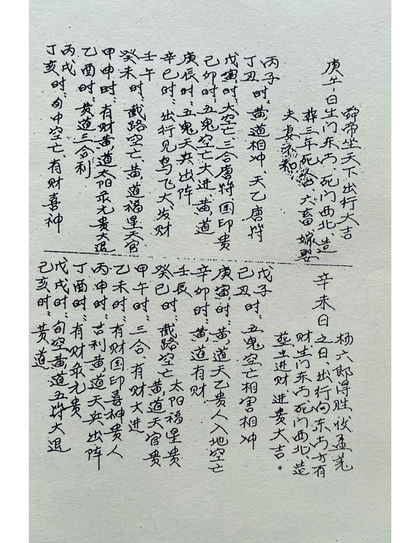 舜帝坐天下出行大吉
庚午日生门东南死门西北造
葬三年死六畜嫁娶
夫妻不和
丙子时:黄道相冲天乙唐符
丁丑
戊寅时:大空亡三合唐符国印贵
己卯时:五鬼空亡大进黄道
庚辰时:五鬼天兵出阵
辛巳时:出行见鸟飞大发财
壬午
癸未时:截路空亡黄道福星天官
甲申时:有财黄道太阳永元贵大退
乙酉时:黄道三合利
丙戌
丁亥时:旬中空亡有财喜神
杨六郎得胜收孟羌
辛未日
之日出行向东南方有
财生门东南死门西北造
葬生进财进贵大吉。
戊子时:五鬼空亡相害相冲
己丑
庚寅时:黄道天乙贵人入地空亡
辛卯时:黄道有财
壬辰 太阳福星贵
癸巳时:截路空亡黄道天官贵
甲午时:三合有财大进
乙未时:有财国印喜神贵人
丙申时:吉利黄道天兵出阵
丁酉时:有财永元贵
戊戌时:旬空黄道五符大退
己亥时:黄道